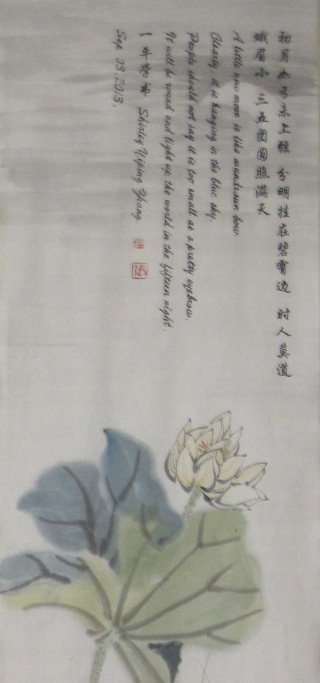 初月如弓未上弦 分明挂在碧霄边 时人莫道
蛾眉小 三五团圆照满天
A little new moon is like an unstrun bow.
Clearly, it is hanging in the blue sky.
People should not say it is too small as a pretty eyebrow.
It will be round and light up the world in the fifteen night.
一井 书 Shirley Yiping Zhang
Sep 03.2013.